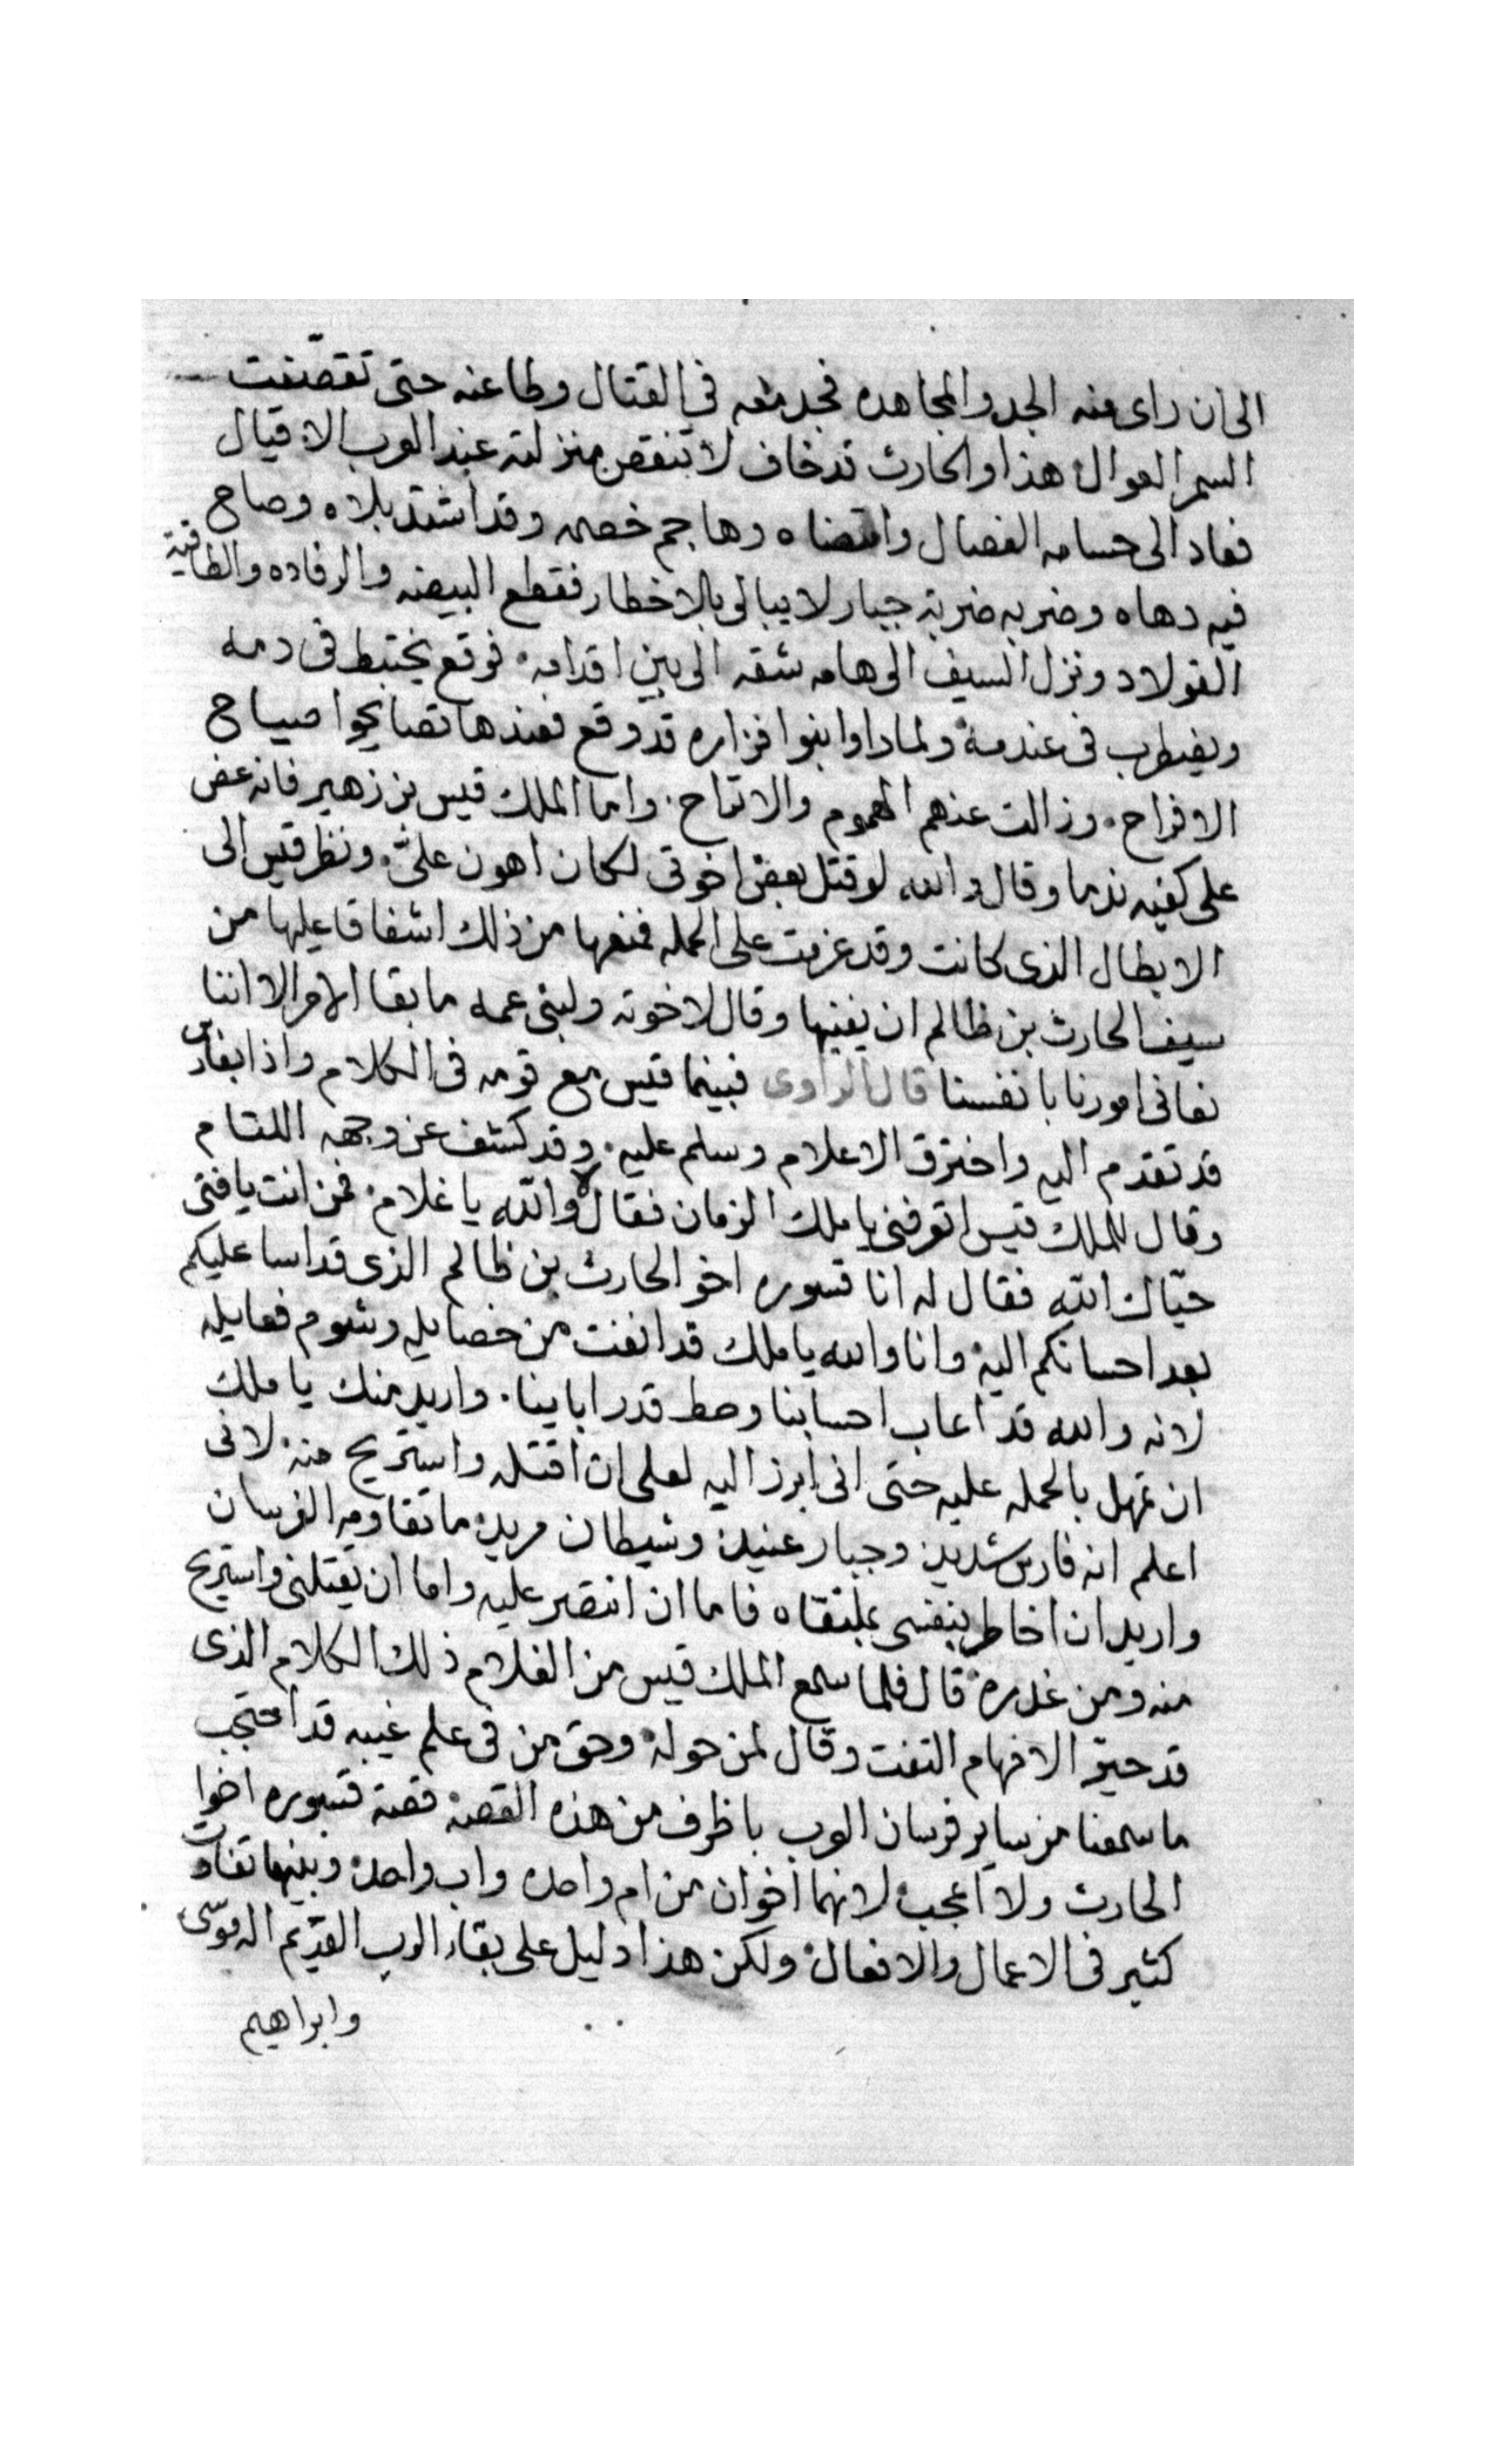 الى ان راى منه الجد والمجاهده فجد معه فى القتال وطاعنه حتى تقصّفت
السمر العوال هذا والحارث قد خاف لا تنقص منزلته عند العرب الاقيال
فعاد الى حسامه الفصال وانتضاه وهاجم خصمه وقد اشتد بلاه وصاح
فيه دهاه وضربه ضربة جبار لا يبالى بالاخطار فقطع البيضه والرفاده والطاقية
الفولاد ونزل السيف الى هامه شقه الى بين اقدامه فوقع يختبط فى دمه
ويضطرب فى عندمه ولما راوا بنوا فزاره قد وقع فعندها تصايحوا صياح
الافراح وزالت عنهم الهموم والاتراح واما الملك قيس بن زهير فانه عض
على كفيه ندما وقال والله لو قتل بعض اخوتى لكان اهون علىّ ونظر قيس الى
الابطال الذى كانت وقد عزمت على الحمله فمنعها من ذلك اشفاقا عليها من
سيف الحارث بن ظالم ان يفنيها وقال لاخوته ولبنى عمه ما بقا الامر الا اننا
نعانى امورنا بانفسنا قال الراوى فبينما قيس مع قومه فى الكلام واذا بفارس
قد تقدم اليه واخترق الاعلام وسلم عليه وقد كشف عن وجهه اللثام
وقال للملك قيس اتعرفنى يا ملك الزمان فقال لا والله يا غلام فمن انت يا فتى
حيّاك الله فقال له انا قسوره اخو الحارث بن ظالم الذى قد اسا عليكم
بعد احسانكم اليه وانا والله يا ملك قد انفت من خصايله وشوم فعايله
لانه والله قد اعاب احسابنا وحط قدر اباينا واريد منك يا ملك
ان تمهل بالحمله عليه حتى انى ابرز اليه لعلى ان اقتله واستريح منه لانى
اعلم انه فارس شديد وجبار عنيد وشيطان مريد ما تقاومه الفرسان
واريد ان اخاطر بنفسى بملتقاه فاما ان انتصر عليه واما ان يقتلنى واستريح
منه ومن غدره قال فلما سمع الملك قيس من الغلام ذلك الكلام الذى
قد حيّر الافهام التفت وقال لمن حوله وحق من فى علم غيبه قد احتجب
ما سمعنا من ساير فرسان العرب باظرف من هذه القصة قصة قسوره اخوا
الحارث ولا اعجب لانهما اخوان من ام واحده واب واحد وبينهما تفاوت
كثير فى الاعمال والافعال ولكن هذا دليل على بقاء الرب القديم اله موسّى
وابراهيم